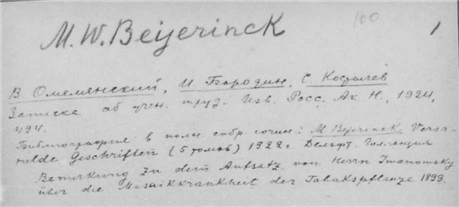 100
1
M. W. Beijerinck
В. Омелянский, И. Бородин, С. Костычев
Записка об учен. труд. Изв. Росс. Ак. Н., 1924,
494.
Библиография в полн. собр. сочин.: M. Bejerinck Versa-
melde Geschriften (5 томов) 1922. Дельфт.
Bemerkung zu dem Aufsatz von Herrn Iwanowsky
über die Mosaikkrankheit der Tabakspflanze 1899.